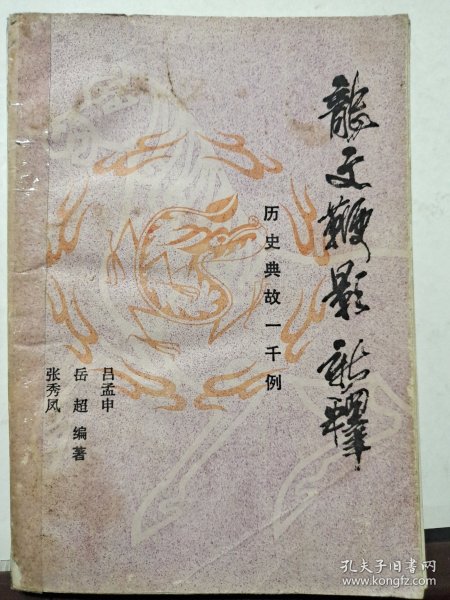 龍文鞭影新釋
历史典故一千例
吕孟申
岳超 编著
张秀凤
孔夫子旧书网
www.kongfz.com